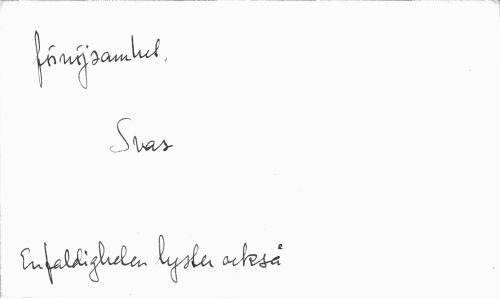 förnöjsamhet.
Svar
Enfaldigheten lyster också